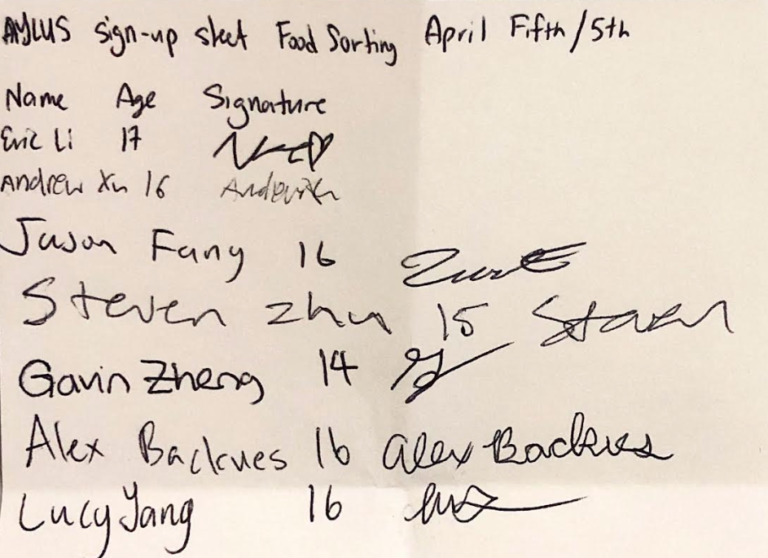 AYLUS sign-up sheet Food Sorting April Fifth/5th
Name Age Signature
Eric Li 17
Andrew Xu 16
Jason Fang 16
Steven Zhu 15 Steven
Gavin Zheng 14
Alex Backues 16 Alex Backues
Lucy Yang 16